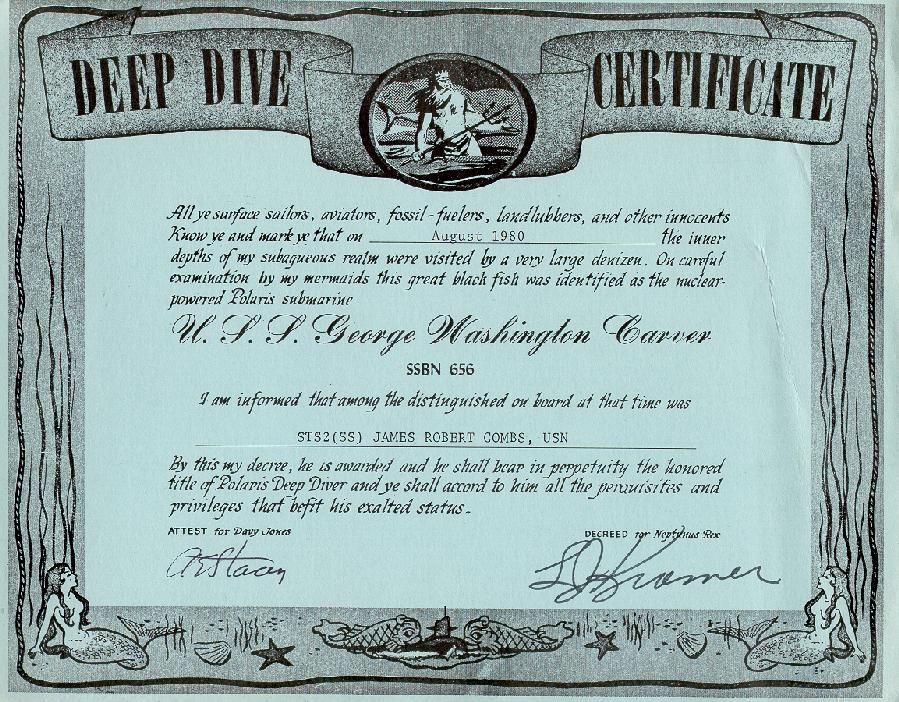 DEEP DIVE CERTIFICATE
All ye surface sailors, aviators, fossil-fuelers, landlubbers, and other innocents
Know ye and mark ye that on August 1980 the inner
depths of my subaqueous realm were visited by a very large denizen. On careful
examination by my mermaids this great black fish was identified as the nuclear-
powered Polaris submarine
U. S. S. George Washington Carver
SSBN 656
I am informed that among the distinguished on board at that time was
STS2(SS) JAMES ROBERT COMBS, USN
By this my decree, he is awarded and he shall bear in perpetuity the honored
title of Polaris Deep Diver and ye shall accord to him all the perquisites and
privileges that befit his exalted status.
ATTEST for Davy Jones
DECREED for Neptunus Rex